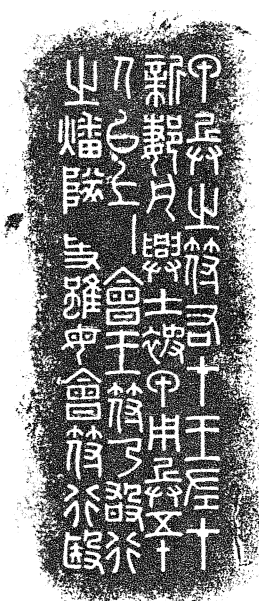 甲兵之符右才王左才
新郪凡興士被甲用兵五十
人以上會王符乃敢行
之燔燧事雖毋會符行殹